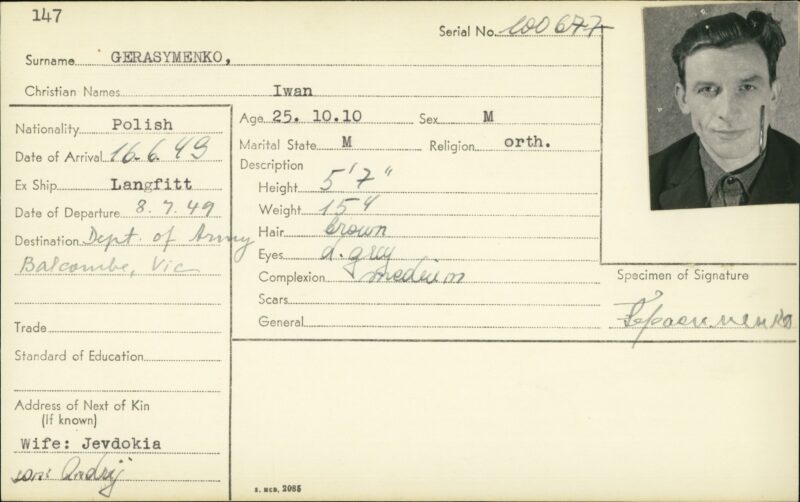 147
Serial No. 100677
Surname GERASYMENKO,
Christian Names Iwan
Nationality Polish
Date of Arrival 16.6.49
Ex Ship Langfitt
Date of Departure 8.7.49
Destination Dept. of Army
Balcombe, Vic
Trade
Standard of Education
Address of Next of Kin
(If known)
Wife: Jevdokia
son: Andrij
Age 25. 10.10 Sex M
Marital State M Religion orth.
Description
Height 5'7"
Weight 154
Hair brown
Eyes d. grey
Complexion medium
Scars
General
Specimen of Signature
S. MCD. 2085